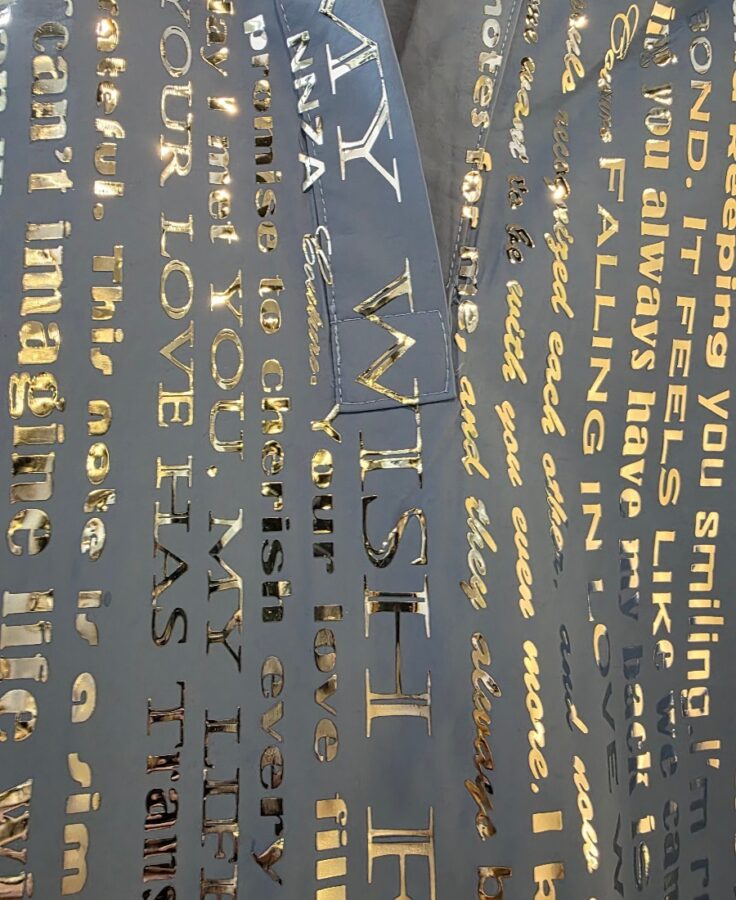 keeping you smiling. I'm
BOND. IT FEELS LIKE we can
you always have my back is
FALLING IN LOVE
recognized each other, and now
want to be with you even more. I
notes for me, and they always
MY WISH
NNZA
Your love fill
promise to cherish every
day I met YOU. MY LIFE
YOUR LOVE HAS Trans
ateful. This note is a sim
can't imagine life wi